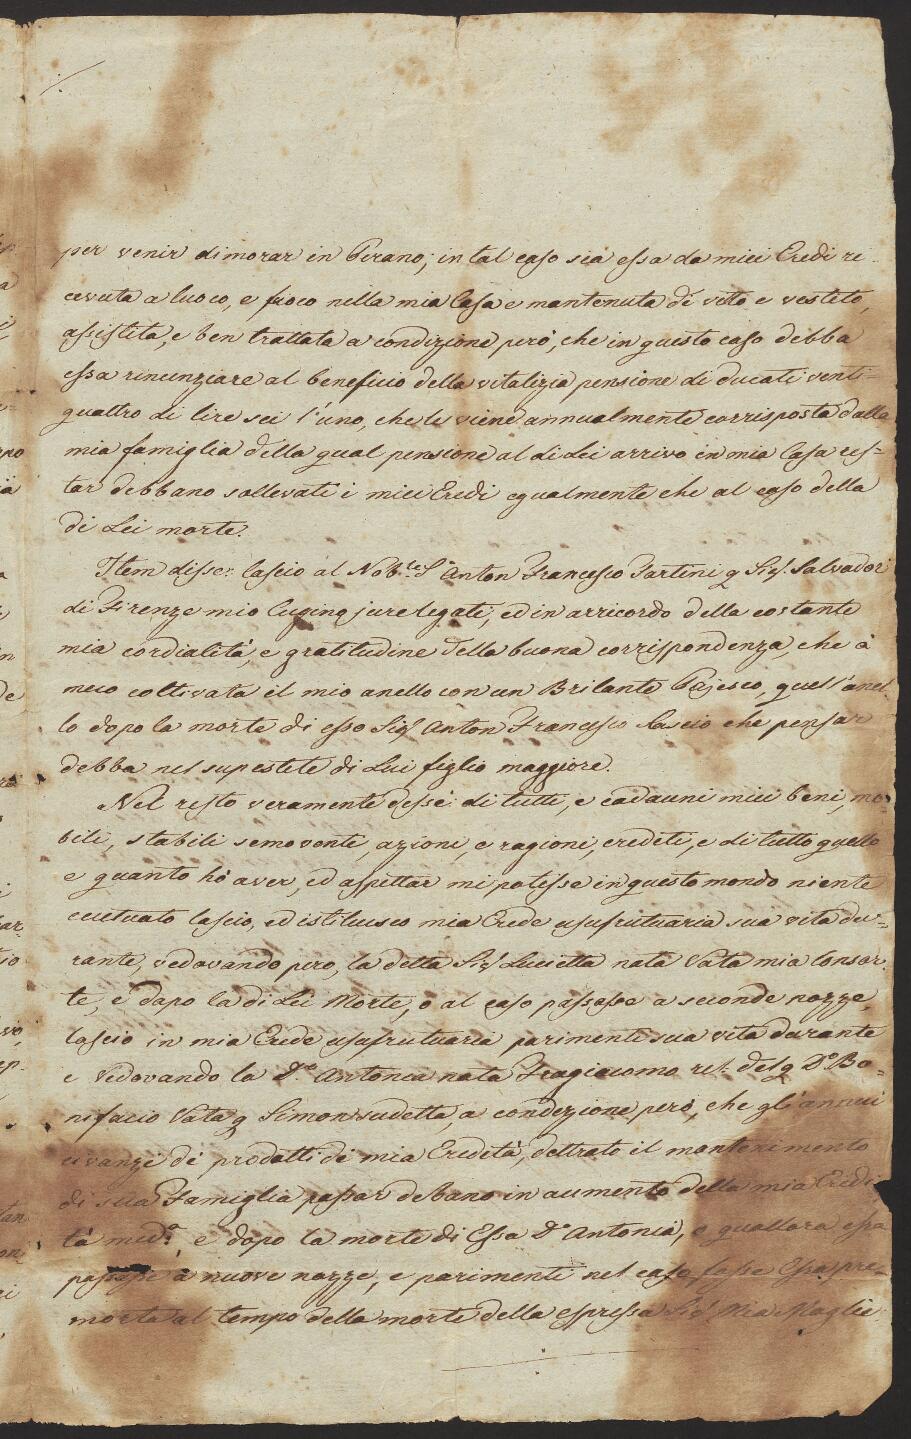 per venir dimorar in Pirano; in tal caso sia essa da miei Eredi ri-
cevuta a luoco, e fuoco nella mia Casa e mantenuta di vitto e vestito,
assistita, e ben trattata a condizione però, che in questo caso debba
essa rinunziare al beneficio della vitalizia pensione di ducati venti-
quattro di lire sei l'uno, che le viene annualmente corrisposta dalla
mia famiglia della qual pensione al di Lei arrivo in mia Casa res-
tar debbano sollevati i miei Eredi egualmente che al caso della
di Lei morte.
Item disse: lascio al Nob.le S.r Anton Francesco Tartini q Sig.r Salvador
di Firenze mio Cugino jure legati, ed in arricordo della costante
mia cordialità, e gratitudine della buona corrispondenza, che à
meco coltivata il mio anello con un Brilante, quell'anel-
lo dopo la morte di esso Sig.r Anton Francesco lascio che pensar
debba nel supestite di Lui figlio maggiore.
Nel resto veramente desse: di tutti, e cadauni miei beni, mo-
bili, stabili semoventi, azioni, e ragioni, crediti, e di tutto quello
e quanto hò aver, ed aspettar mi potesse in questo mondo niente
eccetuato lascio, ed istituisco mia Erede usufrutuaria sua vita du-
rante, vedovando però, la detta Sig.r Lucietta nata Vata mia Consor-
te, e dopo la di Lei Morte, o al caso passasse a seconde nozze,
lascio in mia Erede usufrutuaria parimenti sua vita durante
e Vedovando la D.a Antonia nata Fragiacomo rel: del q D.o Bo-
nifacio Vata q Simon sudetta, a condizione però, che gl'annui
civanzi de prodotti di mia Eredità, dettrato il mantenimento
di sua Famiglia passar debano in aumento della mia Eredi-
tà med.a, e dopo la morte di Essa D.a Antonia, e quallora essa
passasse a nuove nozze, e parimenti nel caso fosse Essa pre-
morta al tempo della morte della espressa Sig.r Mia Moglie